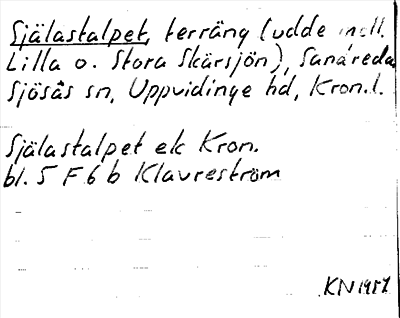 Själastalpet, terräng (udde mell.
Lilla o. Stora Skärsjön), Sanáreda
Sjösås sn, Uppvidinge hd, Kron.l.
Själastalpet ek Kron.
bl. 5 F 6 b Klavreström
KN 1957